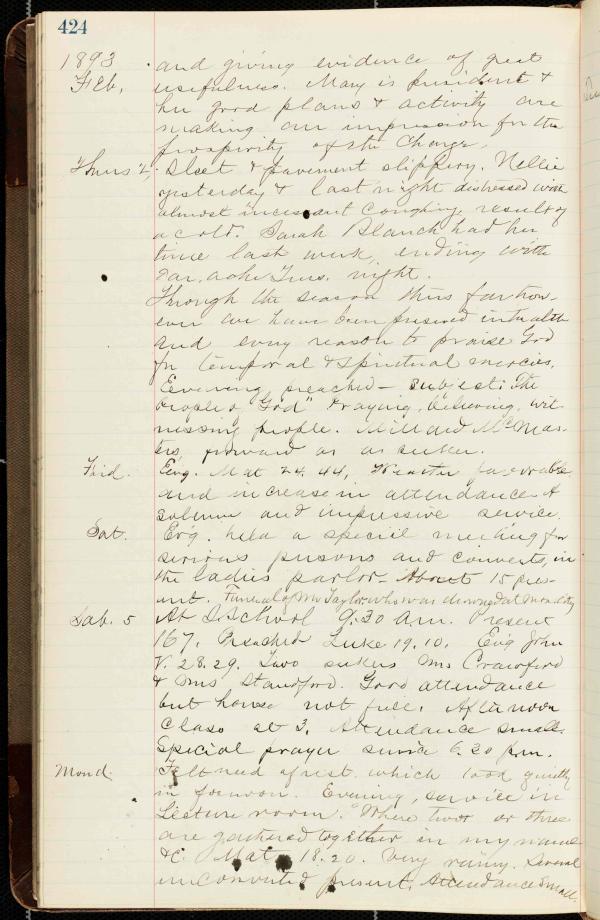 424
1893 and giving evidence of great
Feb, usefulness. Mary is president &
her good plans & activity are
making an impression for the
prosperity of the Charge.
Thurs 2, Sleet & pavement slippery. Nellie
yesterday & last night distressed with
almost incessant coughing, result of
a cold. Sarah Blanch had her
time last week, ending with
ear ache Thurs. night.
Through the season thus far how-
ever we have been preserved in health
and every reason to praise God
for temporal & spiritual mercies.
Evening preached - Subject: "The
People of God" Praying, believing, wit-
nessing people. Millard McMas-
ters, forward as a seeker.
Frid. Evg. Mat 24. 44, Weather favorable
and increase in attendance. A
solemn and impressive service.
Sat. Ev'g. held a special meeting for
serious persons and converts, in
the ladies parlor. About 15 pres-
ent. Funeral of Mr Taylor who was drowned at
Sab. 5 At S. School 9.30 a.m. Present
167. Preached Luke 19.10. Ev'g John
V. 28.29. Two seekers Mrs Crawford
& Mrs Standford. Good attendance
but house not full. Afternoon
Class at 3. Attendance small.
Special prayer service 6.30 p.m.
Mond. Felt need of rest which took quietly
in forenoon. Evening, service in
Lecture room. "Where two or three
are gathered together in my name
&c. Mat. 18.20. Very rainy. Several
unconverted present. Attendance small.